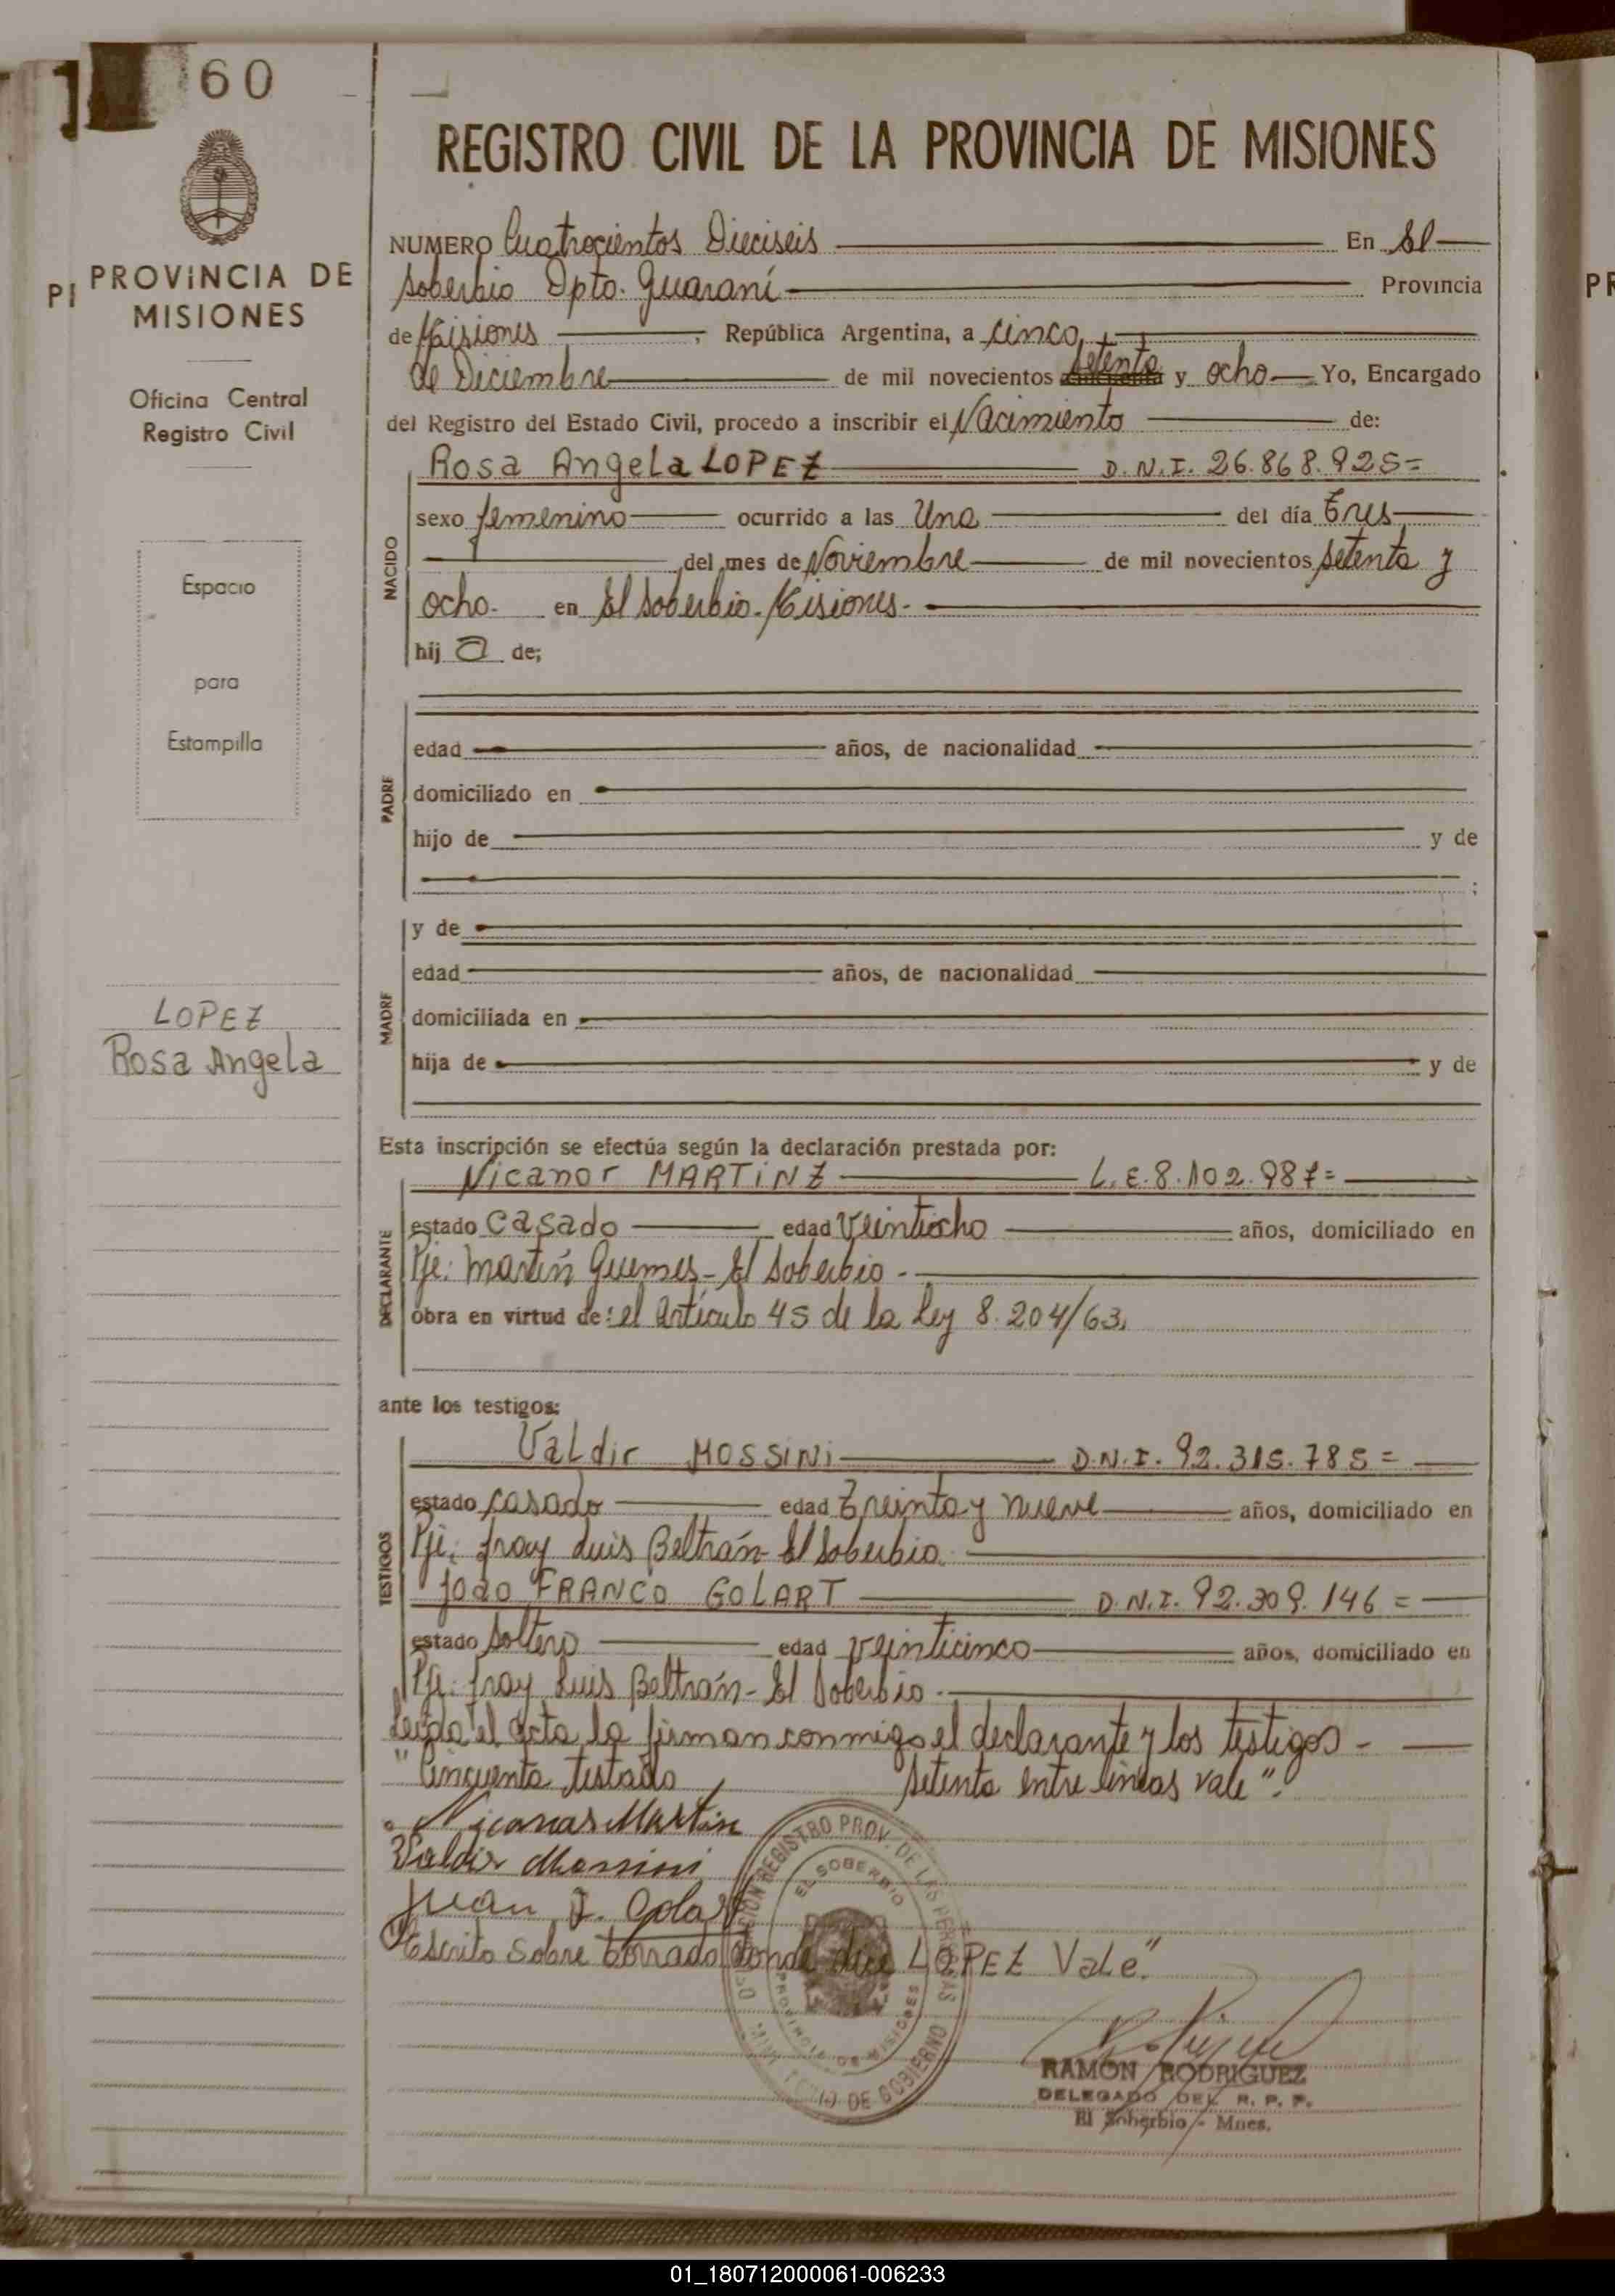 60
PROVINCIA DE
MISIONES
Oficina Central
Registro Civil
Espacio
para
Estampilla
LOPEZ
Rosa Angela
REGISTRO CIVIL DE LA PROVINCIA DE MISIONES
NUMERO Cuatrocientos Dieciseis En El
Soberbio Dpto. Guaraní Provincia
de Misiones, República Argentina, a cinco
de Diciembre de mil novecientos setenta y ocho Yo, Encargado
del Registro del Estado Civil, procedo a inscribir el Nacimiento de:
Rosa Angela LOPEZ D.N.I. 26.868.925=
NACIDO
sexo femenino ocurrido a las Una del día Tres
del mes de Noviembre de mil novecientos setenta y
ocho. en El Soberbio. Misiones.
hij a de;
PADRE
edad años, de nacionalidad
domiciliado en
hijo de y de
;
MADRE
y de
edad años, de nacionalidad
domiciliada en
hija de y de
Esta inscripción se efectúa según la declaración prestada por:
Nicanor MARTINZ L.E. 8.102.987=
DECLARANTE
estado Casado edad Veintiocho años, domiciliado en
Pje. Martín Guemes - El Soberbio -
obra en virtud de: el Artículo 45 de la Ley 8.204/63.
ante los testigos:
Valdir MOSSINI D.N.I. 92.315.785=
TESTIGOS
estado casado edad Treinta y nueve años, domiciliado en
Pje. Fray Luis Beltrán - El Soberbio
Joao FRANCO GOLART D.N.I. 92.309.146=
estado soltero edad veinticinco años, domiciliado en
Pje. Fray Luis Beltrán - El Soberbio.
Leida el acta la firman conmigo el declarante y los testigos -
"Cincuenta testado, setenta entre lineas vale".
Nicanor Martin
Valdir Mossini
Juan F. Golart
"Escrito sobre borrado donde dice LOPEZ Vale."
EL SOBERBIO
RAMON RODRIGUEZ
DELEGADO DEL R. P. P.
El Soberbio - Mnes.
PI
PR
01_180712000061-006233